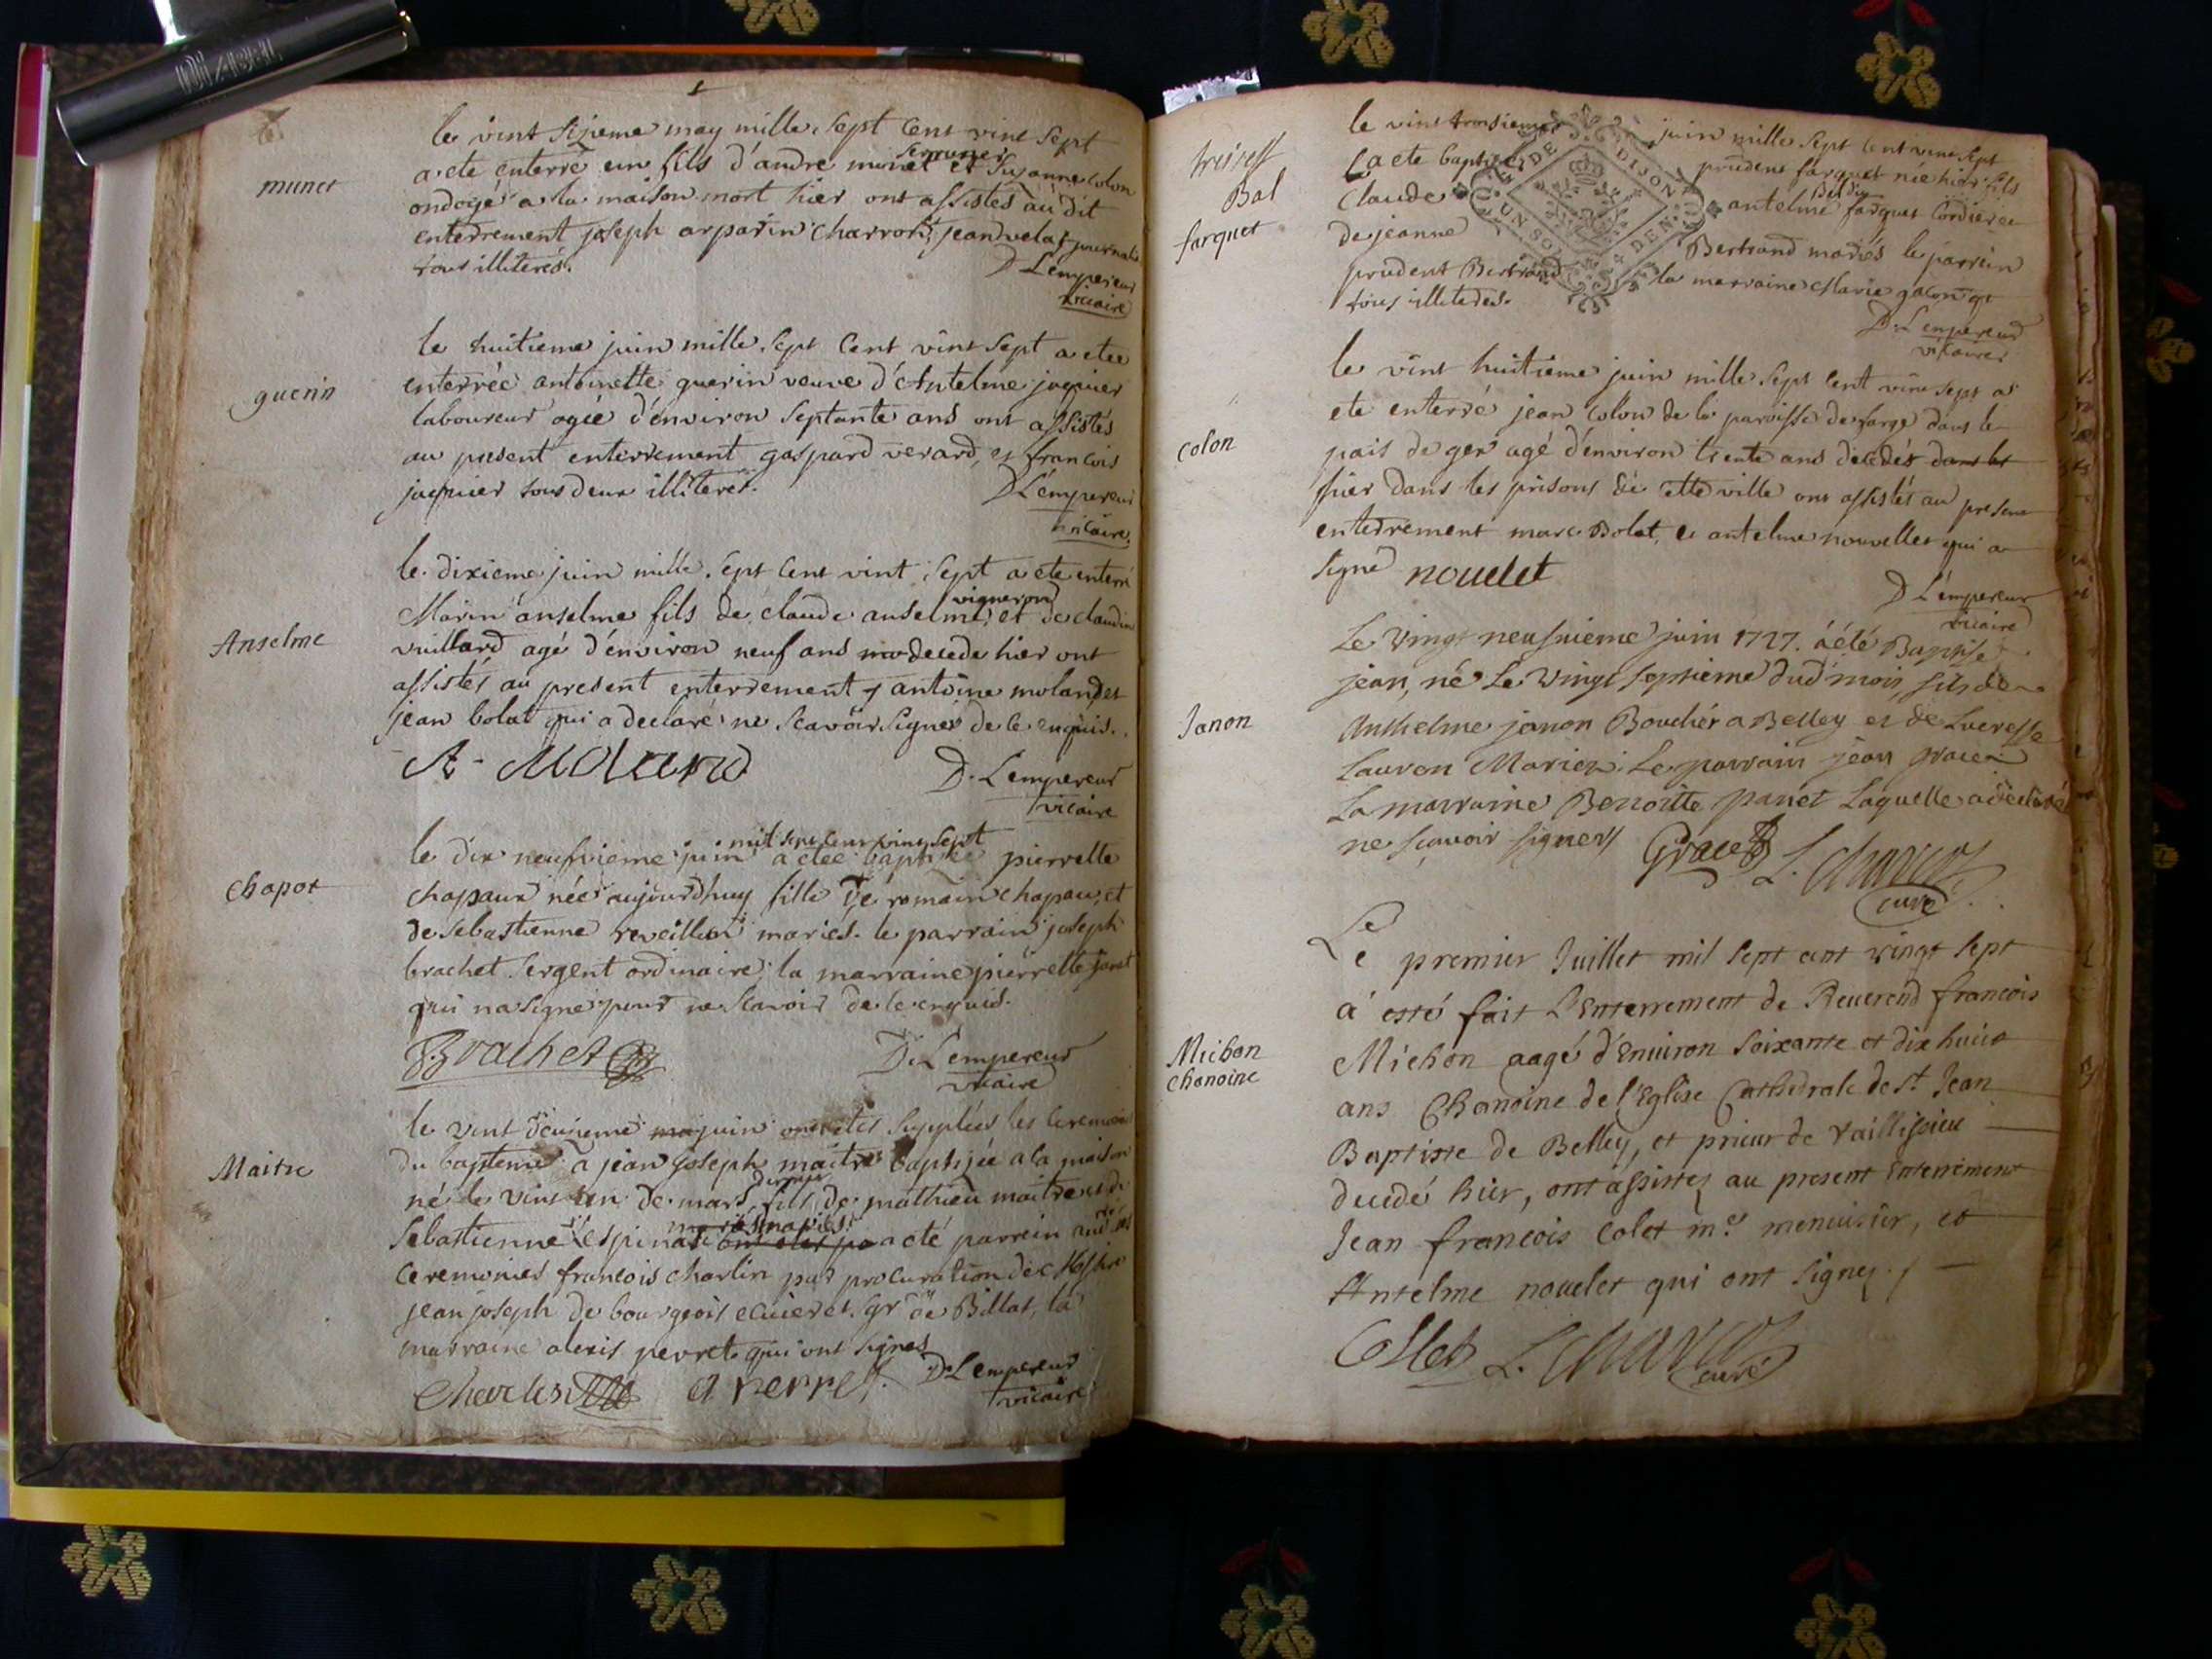 munet
le vint sixieme may mille sept cent vint sept
a ete enterré un fils d'andre munet serrurier et Suzanne colon
ondogé a la maison mort hier ont assistés au dit
enterrement joseph arparin charron, jean velat journalie
tous illiterés.
D Lempereur
vicaire
guerin
le huitieme juin mille sept cent vint sept a etee
enterrée antoinette guerin veuve d'Antelme jaquier
laboureur agée d'environ septante ans ont assistés
au present enterrement gaspard verard, et francois
jaquier tous deux illiterés.
D Lempereur
vicaire
Anselme
le dixieme juin mille sept cent vint sept a ete enterré
Marin anselme fils de claude anselme vigneron et de claudine
vuillard agé d'environ neuf ans decede hier ont
assistés au present enterrement antoine molard et
jean bolat qui a declaré ne scavoir signer de ce enquis.
A. Molard
D. Lempereur
vicaire
Chapot
le dix neufvieme juin mil sept cent vint sept a etee baptisée pierrette
chapaux née aujourd'huy fille de romain chapaux et
de sebastienne reveillon mariés. le parrain joseph
brachet sergent ordinaire; la marraine pierrette
qui na signé pour ne scavoir de ce enquis.
Brachet
D. Lempereur
vicaire
Maitre
le vint deuxieme juin ont etes supplées les ceremonies
du bapteme a jean joseph maitre baptisée a la maison
né le vint un de mars dernier fils de mathieu maitre et de
Sebastienne espinas mariés a eté parrein aud
ceremonies francois charlin par procuration de Messire
jean joseph de bourgeois ecuier et sgr de Billat, la
marraine alexis perret qui ont signes
Charlin
A perret.
D Lempereur
vicaire
Bal
farquet
le vint troisieme juin mille sept cent vint sept
a ete baptisé prudent farquet né hier fils
Claude antelme farquet cordier et
de jeanne Bertrand mariés le parrein
prudent Bertrand la marraine Marie gacon
tous illiterés.
D. Lempereur
vicaire
colon
le vint huitieme juin mille sept cent vint sept a
ete enterré jean colon de la paroisse de farge dans le
pais de gex agé d'environ trente ans decedés dans les
hier dans les prisons de cette ville ont assistés au present
enterrement marc Bolat, et antelme nouvellet qui a
signé nouelet
D Lempereur
vicaire
Janon
Le vingt neufvieme juin 1727. a été Baptisé
jean, né Le vingt septieme dud mois, fils de
Anthelme janon Bouchér a Belley et de Lucresse
Lauron Mariez. Le parrain jean gracer
La marraine Benoitte panet Laquelle a déclaré
ne sçavoir signer
Gracer L. Charcot
curé
Michon
chanoine
Le premier Juillet mil sept cent vingt sept
a esté fait L'Enterrement de Reuerend francois
Michon aagé d'Enuiron soixante et dix huict
ans Chanoine de l'Eglise Cathedrale de St Jean
Baptiste de Belley, et prieur de Vaillissieu
decedé hier, ont assistez au present Enterrement
Jean francois Colet me menuisier, et
Antelme nouelet qui ont signez.
Collet L. Charcot
curé
DE DIJON
UN SOL
DEN